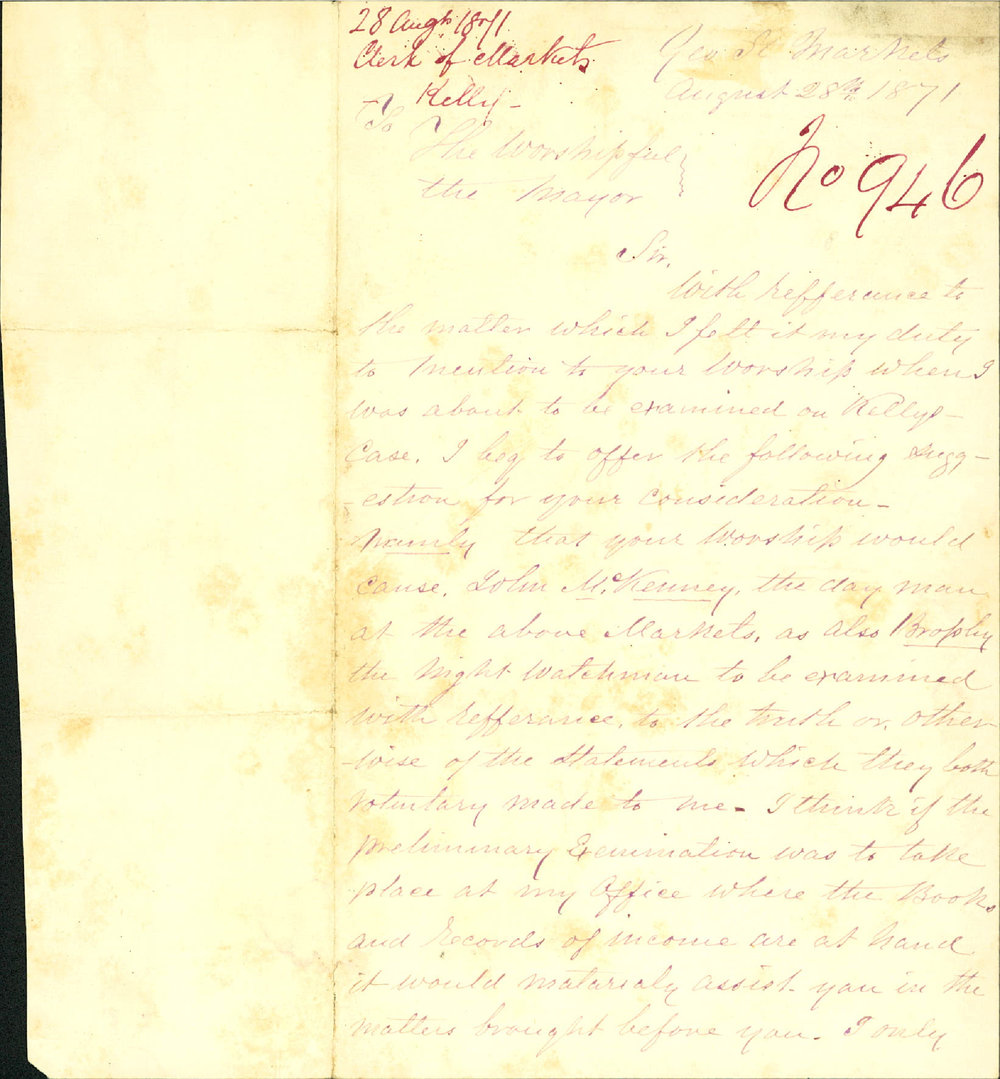 28 Augt 1871
Clerk of Markets
Kelly -
Geo St Markets
August 28th 1871
To
The Worshipful
the Mayor
No 946
Sir,
With refferance to
the matter which I felt it my duty
to mention to your Worship when I
was about to be examined on Kellys -
Case. I beg to offer the following sugg-
-estion for your consideration -
Namly that your Worship would
cause, John McKenney, the day man
at the above Markets, as also Brophy
the Night Watchman to be examined
with refferance, to the truth or, other-
-wise of the Statements which they both
voluntary made to me - I think if the
preliminary Examination was to take
place at my Office where the Books
and Records of income are at hand
it would mataraly assist - you in the
matters brought before you - I only